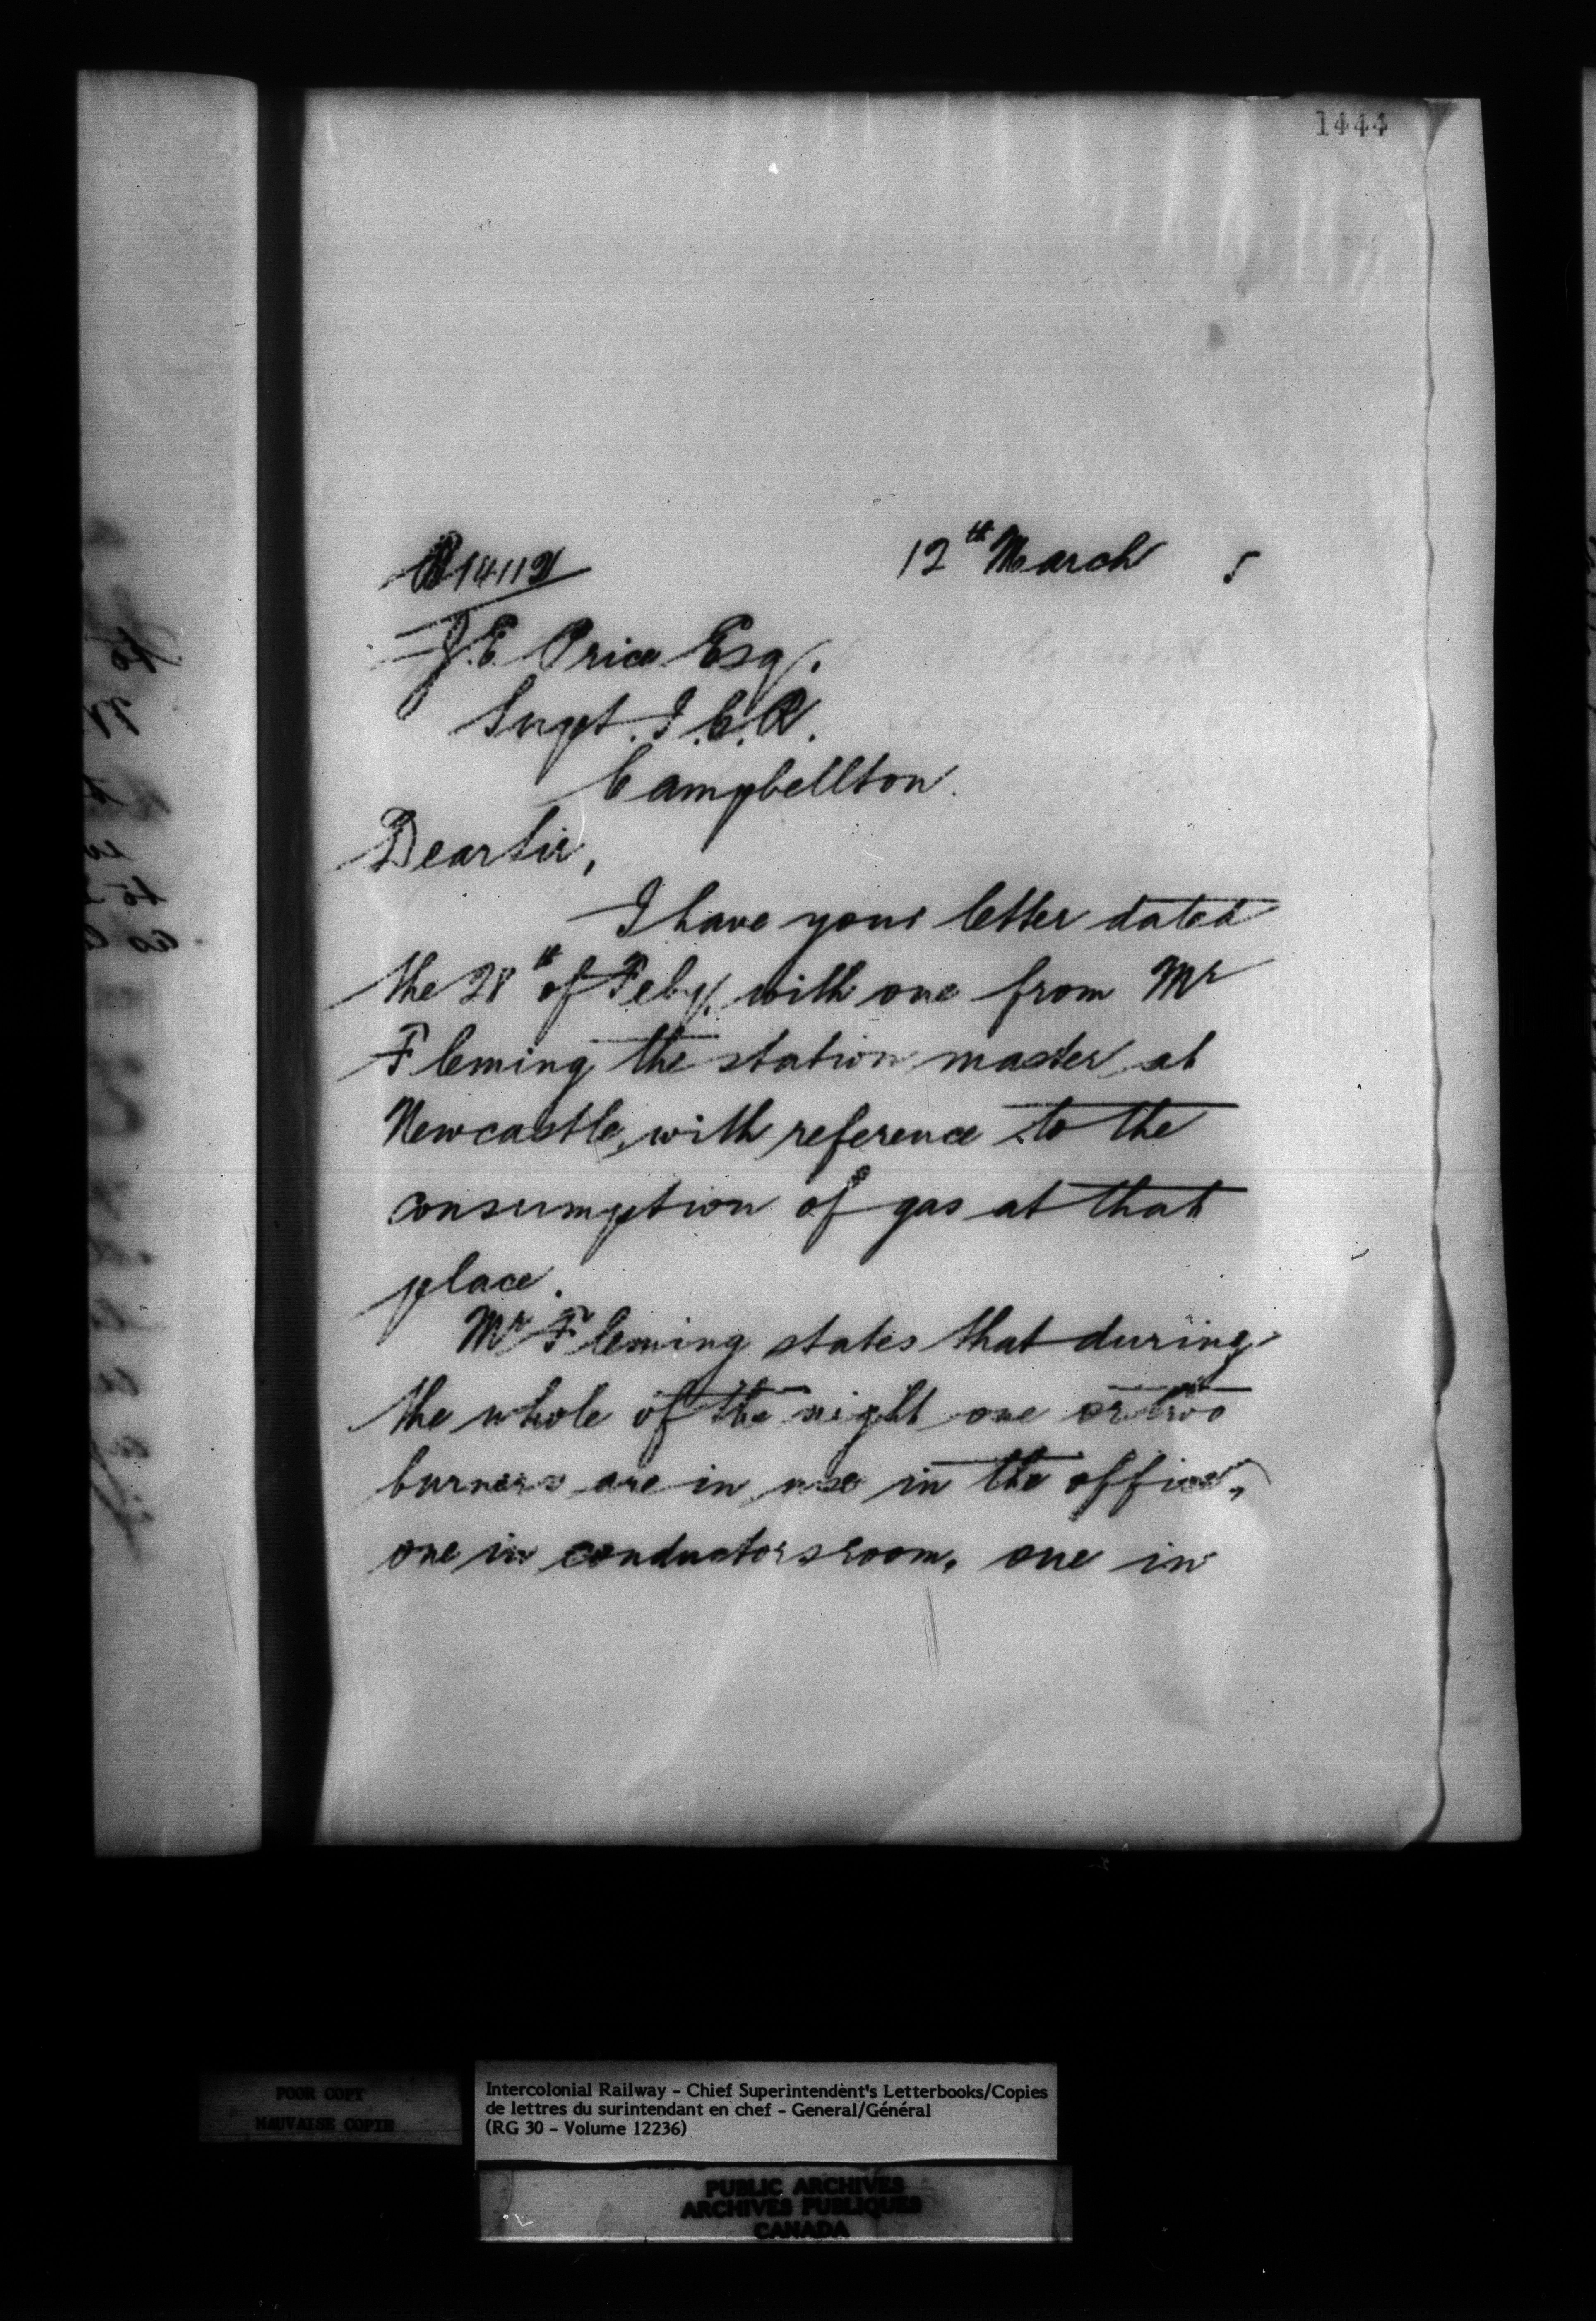 1444
12th March 5
J.E. Price Esq.
Supt. I.C.R.
Campbellton.
Dear Sir,
I have your letter dated
the 28th of Feby. with one from Mr
Fleming the station master at
Newcastle, with reference to the
consumption of gas at that
place.
Mr Fleming states that during
the whole of the night one or two
burners are in use in the office,
one in conductors room, one in
POOR COPY
MAUVAISE COPIE
Intercolonial Railway - Chief Superintendent's Letterbooks/Copies
de lettres du surintendant en chef - General/Général
(RG 30 - Volume 12236)
PUBLIC ARCHIVES
ARCHIVES PUBLIQUES
CANADA